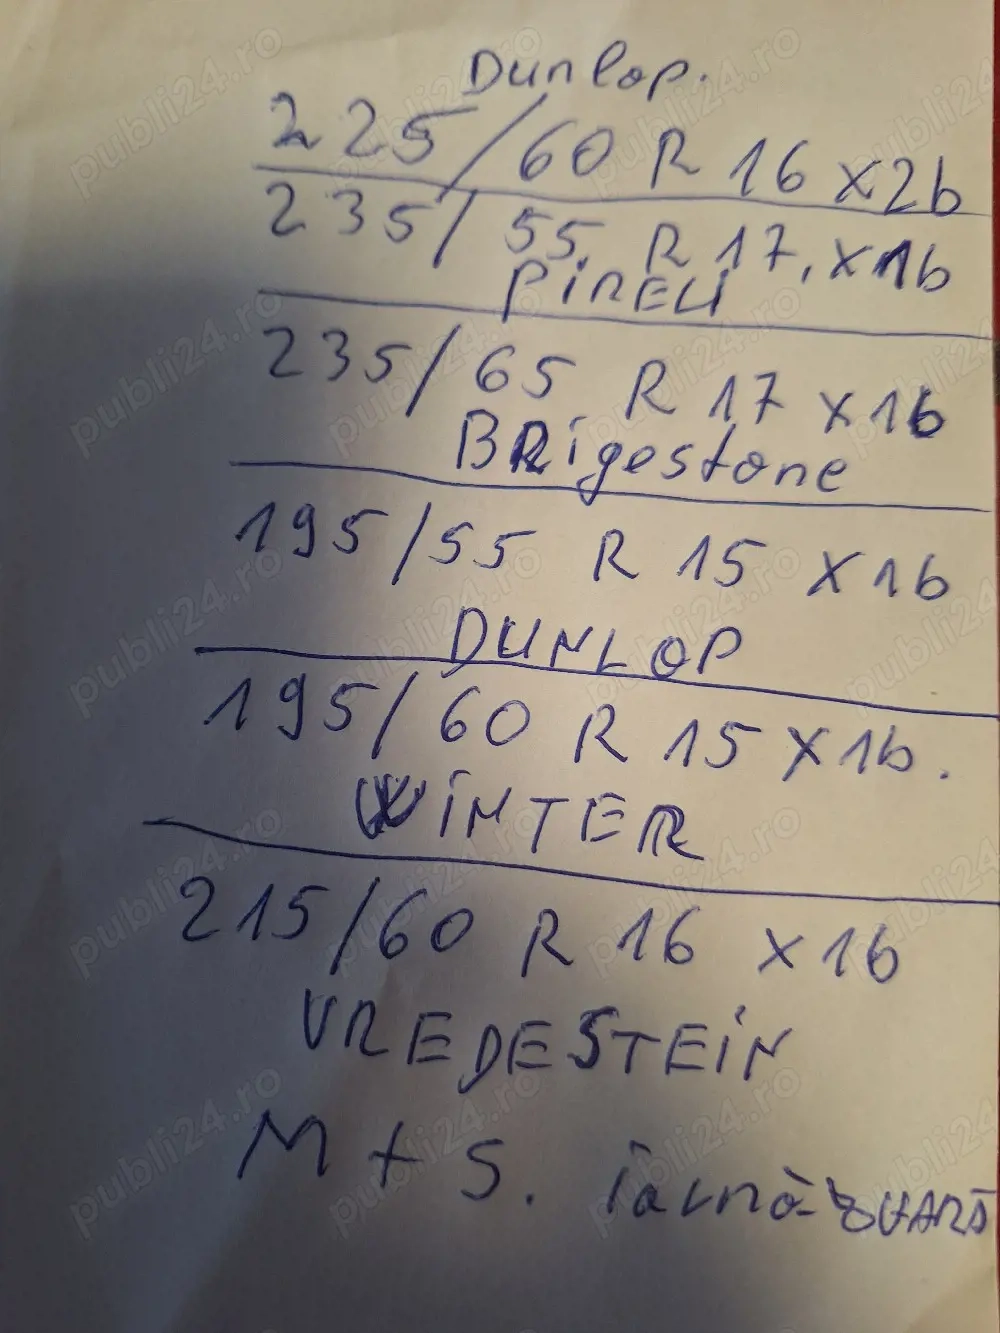 Dunlop.
225/60 R 16 x2b
235/55 R 17, x1b
PiRELi
235/65 R 17 x1b
BRigestone
195/55 R 15 x1b
DUNLOP
195/60 R 15 x1b.
WiNTER
215/60 R 16 x1b
VREDESTEiN
M+S. iarnă-VARĂ